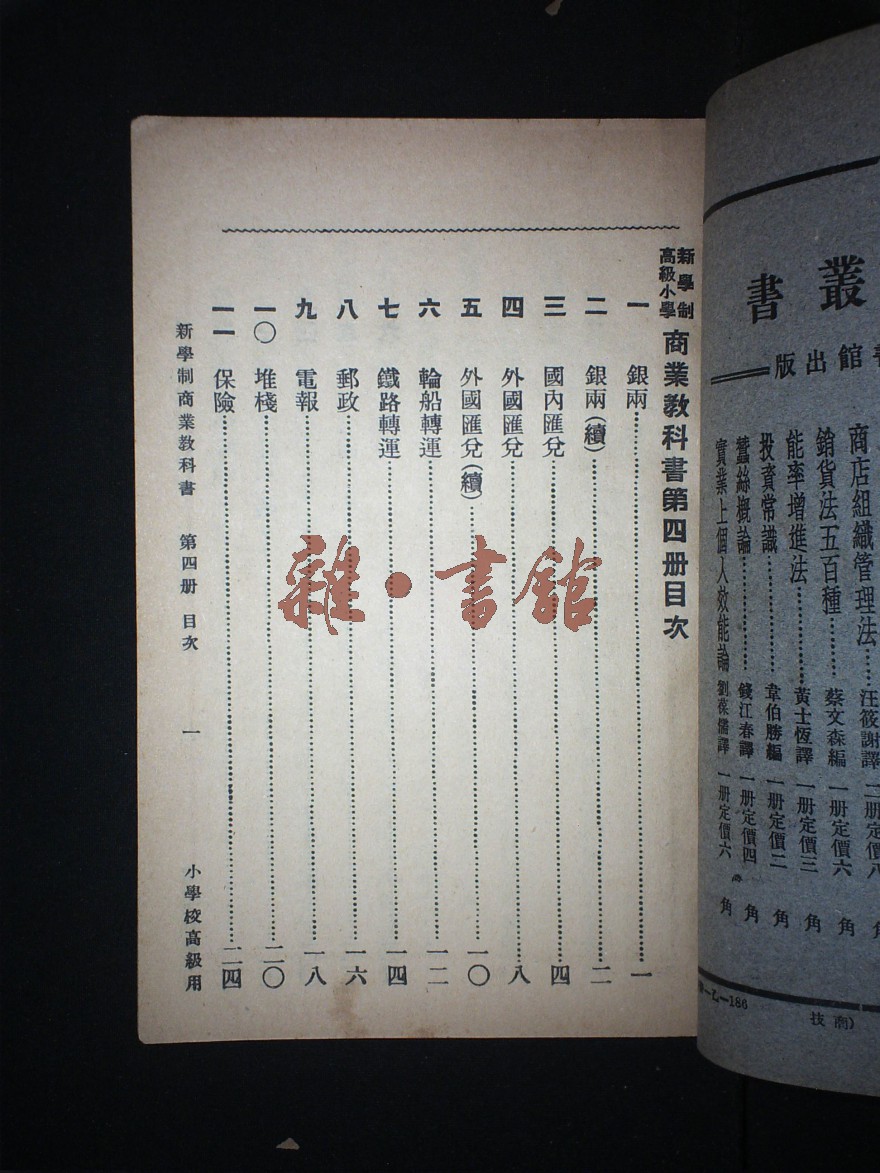 新學制
高級小學
商業教科書第四册目次
一 銀兩 一
二 銀兩(續) 二
三 國內匯兌 四
四 外國匯兌 八
五 外國匯兌(續) 一〇
六 輪船轉運 一二
七 鐵路轉運 一四
八 郵政 一六
九 電報 一八
一〇 堆棧 二〇
一一 保險 二四
新學制商業教科書 第四册 目次 一 小學校高級用
雜·書館
叢書
館出版
商店組織管理法 汪筱謝譯 一册定價八角
銷貨法五百種 蔡文森編 一册定價六角
能率增進法 黃士恆譯 一册定價三角
投資常識 韋伯勝編 一册定價二角
蠶絲概論 錢江春譯 一册定價四角
實業上個人效能論 劉葆儒譯 一册定價六角
商技)